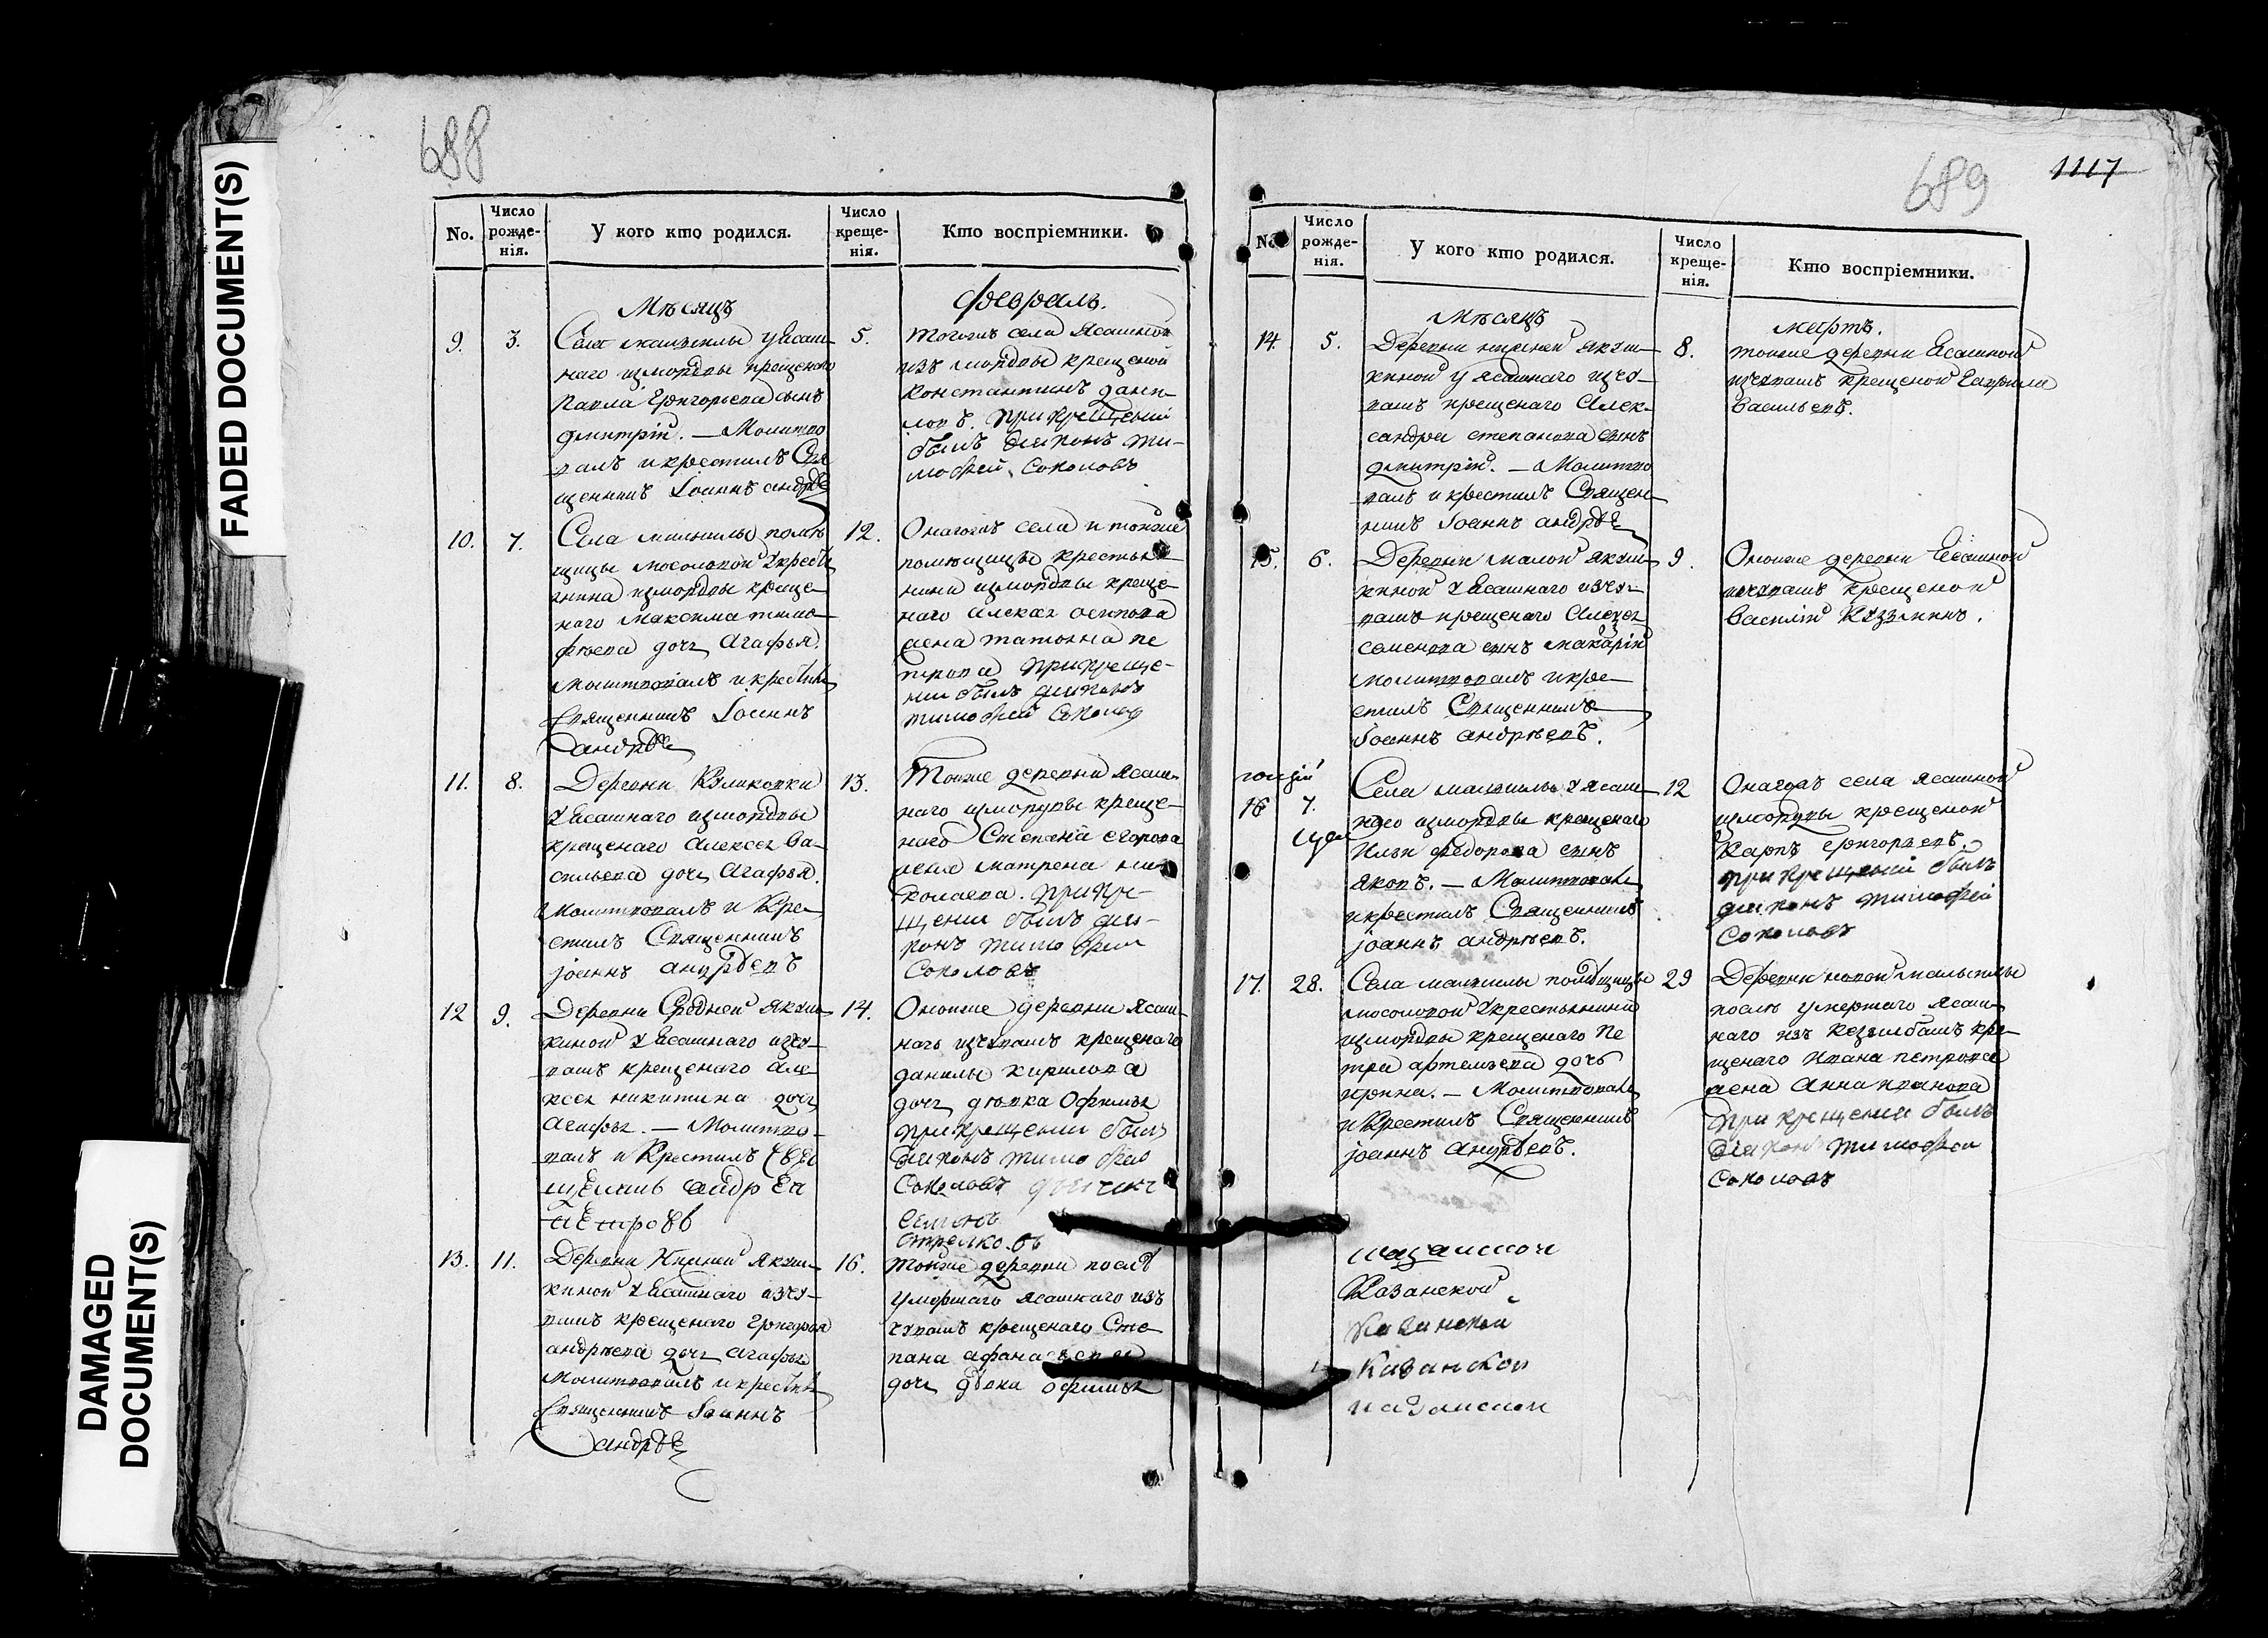 FADED DOCUMENT(S)
DAMAGED
DOCUMENT(S)
688
No.
Число
рожде-
нія.
У кого кто родился.
Число
креще-
нія.
Кто воспріемники.
Мѣсяцъ
февраль.
9.
3.
Села малкилы у Ясаш-
наго измордвы крещенаго
Павла Григорьева сынъ
Дмитрій. — Молитво
валъ и крестилъ Свя
щенникъ Іоаннъ андрѣе
5.
тогожъ села Ясашной
изъ мордвы крещеной
Константинъ дани-
ловъ. при крещеніи
былъ диаконъ ти-
мофей Соколовъ
10.
7.
Села помѣ
щицы мосоловой Укресть
янина измордвы креще-
наго Максима тимо
фѣева дочь Агафья.
молитвовалъ и крестилъ
Священникъ Іоаннъ
андрѣе
12.
Оногожъ села и тойже
помѣщицы крестья
нина измордвы креще-
наго алексея осипова
жена татьяна пе
трова при креще-
нии былъ диаконъ
тимофей Соколов
11.
8.
Деревни Куликовки
У Ясашнаго измордвы
крещенаго Алексея Ва-
сильева дочь Агафья.
Молитвовалъ и Кре
стилъ Священникъ
іоаннъ андрѣевъ
13.
Тойже деревни Ясаш-
наго измордвы креще-
наго Степана егорова
жена матрена ни
колаева. при кре-
щении былъ диа-
конъ тимофеи
Соколовъ
12
9.
Деревни Средней Якуш
киной У Ясашнаго изчу-
вашъ крещенаго Але
ксея никитина дочь
Агафья. — Молитво-
валъ и Крестилъ Све
щенникъ андрей
петровъ
14.
Оноиже деревни Ясаш-
наго изчувашъ крещенаго
данилы кирилова
дочь дѣвка Офимья
при крещении былъ
диаконъ тимофей
Соколовъ
Семенъ
Стрелковъ
13.
11.
Деревни Нижней Якуш-
киной У Ясашнаго изчу-
вашъ крещенаго Григорья
андрѣева дочь агафья
Молитвовалъ и крестилъ
Священникъ Іоаннъ
андрѣе
16.
тойже деревни послѣ
умершаго Ясашнаго изъ
чувашъ крещенаго Сте
пана афанасьева
дочь дѣвка офимья
689
1117
No.
Число
рожде-
нія.
У кого кто родился.
Число
креще-
нія.
Кто воспріемники.
Мѣсяцъ
мартъ.
14.
5.
Деревни нижней Якуш-
киной у Ясашнаго изчу-
вашъ крещенаго Алек-
сандра степанова сынъ
дмитрій. — Молитво
валъ и крестилъ Священ-
никъ Іоаннъ андрѣе
8.
тойже деревни Ясашной
изчувашъ крещеной Гаврила
Васильевъ.
15.
6.
Деревни малой Якуш-
киной У Ясашнаго изчу-
вашъ крещенаго Алексея
семенова сынъ макарій
молитвовалъ и кре
стилъ Священникъ
Іоаннъ андрѣевъ.
9.
Оноиже деревни Ясашной
изчувашъ крещеной
Василій Кузминъ.
16
7.
Села У Ясаш-
наго измордвы крещенаго
Ильи федорова сынъ
Яковъ. — Молитвовалъ
и крестилъ Священникъ
іоаннъ андрѣевъ.
12
Оногожъ села Ясашной
измордвы крещеной
Карпъ григорьевъ.
при крещении былъ
диаконъ тимофей
Соколовъ
17.
28.
Села помѣщицы
мосоловой Укрестьянина
измордвы крещенаго Пе
тра артемьева дочь
ирина. — Молитвовалъ
и Крестилъ Священникъ
іоаннъ Андрѣевъ.
29
Деревни новой
послѣ умершаго Ясаш-
наго изъ кре-
щенаго Ивана петрова
жена Анна иванова
при крещении былъ
диаконъ тимофеи
Соколовъ
Казанской
Казанской
Казанской